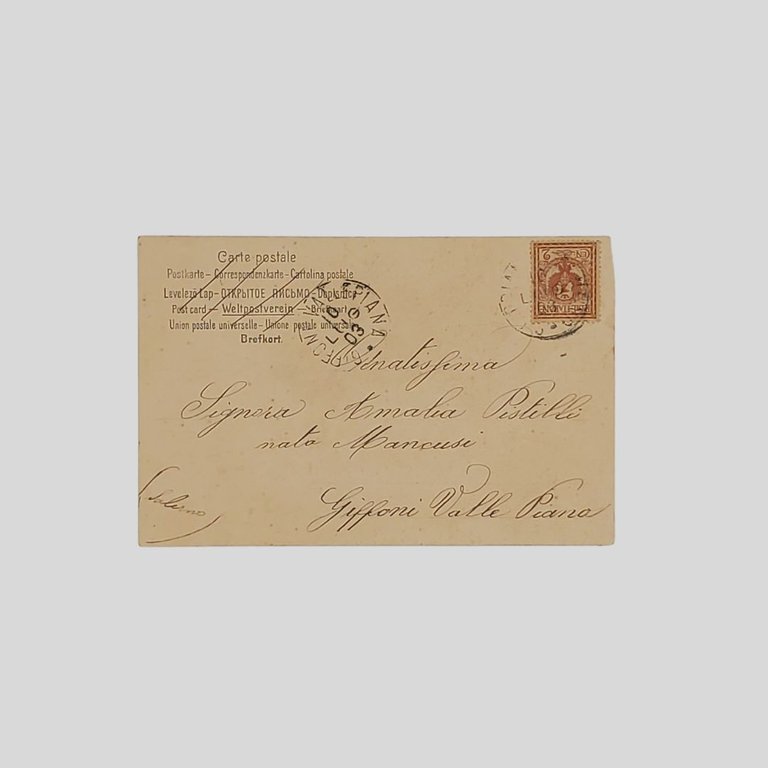 Carte postale
Postkarte – Correspondenzkarte – Cartolina postale
Levelező-Lap – ОТКРЫТОЕ ПИСЬМО – Dopisnice
Post card – Weltpostverein – Brievkaart
Union postale universelle – Unione postale universale
Brefkort.
PIANA
03
Ornatissima
Signora Amalia Pistilli
nata Mancusi
Giffoni Valle Piana
(Salerno)